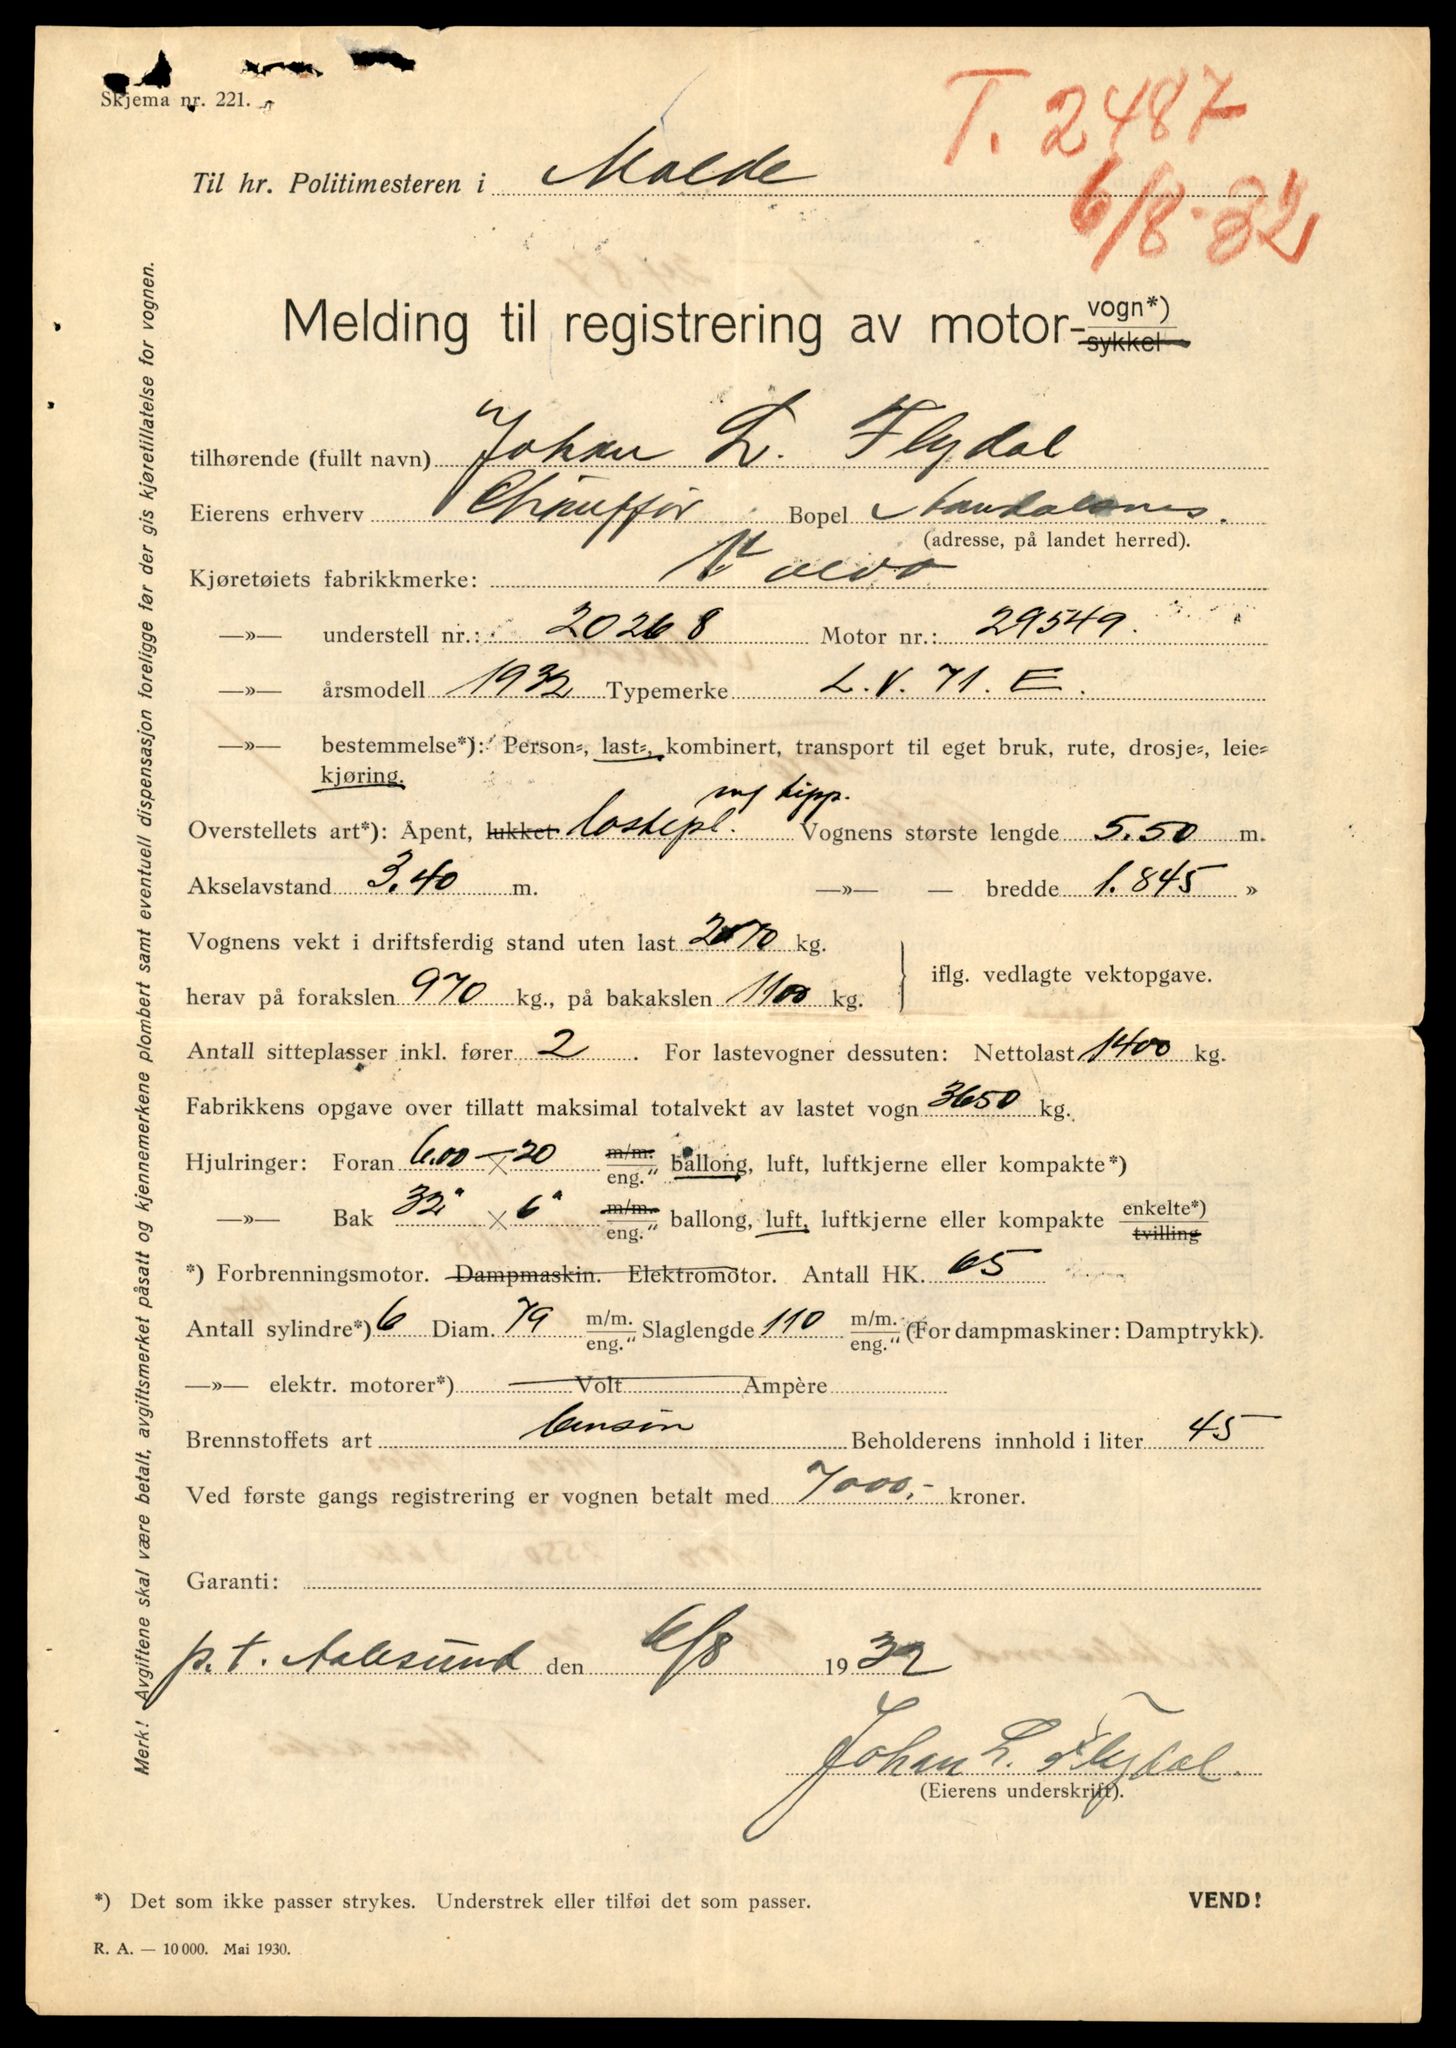 Skjema nr. 221.
T. 2487
6/8-32
Til hr. Politimesteren i Molde
Melding til registrering av motor- vogn*)
sykkel
tilhørende (fullt navn) Johan L. Flydal
Eierens erhverv Chauffør Bopel Aandalsnes.
(adresse, på landet herred).
Kjøretøiets fabrikkmerke: Volvo
—»— understell nr.: 20268 Motor nr.: 29549.
—»— årsmodell 1932 Typemerke L.V. 71. E.
—»— bestemmelse*): Person-, last-, kombinert, transport til eget bruk, rute, drosje-, leie-
kjøring.
m/ tipp.
Overstellets art*): Åpent, lukket lastepl. Vognens største lengde 5.50 m.
Akselavstand 3.40 m. —»— — bredde 1.845 »
Vognens vekt i driftsferdig stand uten last 2070 kg.
herav på forakslen 970 kg., på bakakslen 1100 kg. } iflg. vedlagte vektopgave.
Antall sitteplasser inkl. fører 2 . For lastevogner dessuten: Nettolast 1400 kg.
Fabrikkens opgave over tillatt maksimal totalvekt av lastet vogn 3650 kg.
Hjulringer: Foran 6.00 – × 20 m/m. eng." ballong, luft, luftkjerne eller kompakte*)
—»— Bak 32" × 6" m/m. eng." ballong, luft, luftkjerne eller kompakte enkelte*) tvilling
*) Forbrenningsmotor. Dampmaskin. Elektromotor. Antall HK. 65
Antall sylindre*) 6 Diam. 79 m/m. eng." Slaglengde 110 m/m. eng." (For dampmaskiner: Damptrykk).
—»— elektr. motorer*) Volt Ampère
Brennstoffets art bensin Beholderens innhold i liter 45
Ved første gangs registrering er vognen betalt med 7000,- kroner.
Garanti:
p.t. Aalesund den 6/8 1932
Johan L. Flydal.
(Eierens underskrift).
*) Det som ikke passer strykes. Understrek eller tilføi det som passer. VEND!
R. A. — 10 000. Mai 1930.
Merk! Avgiftene skal være betalt, avgiftsmerket påsatt og kjennemerkene plombert samt eventuell dispensasjon forelige før der gis kjøretillatelse for vognen.